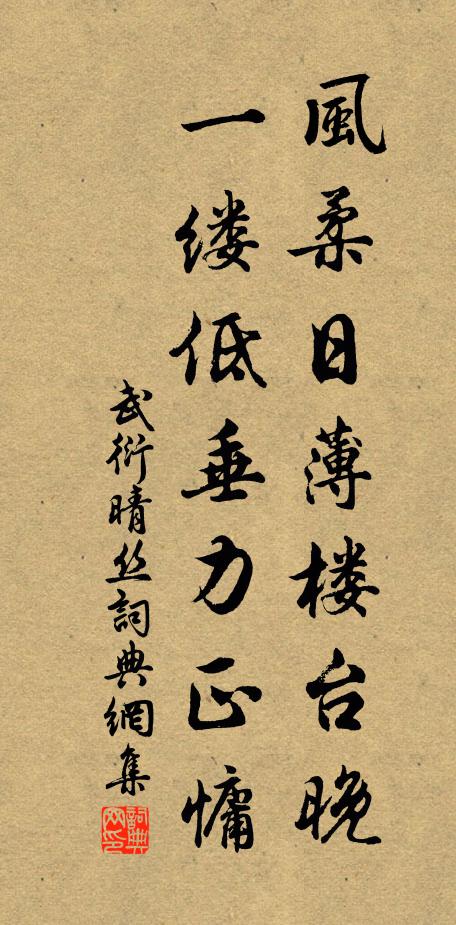 風柔日薄楼台晚
一缕低垂力正慵
武衍晴丝詞典網集
詞典网印